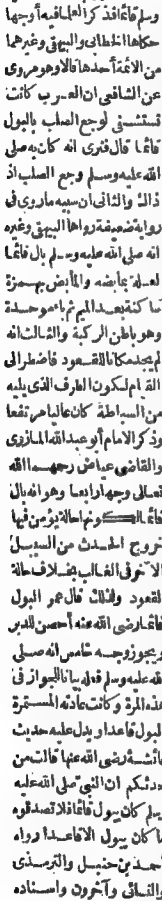 وسلم قائما فذكر العلماء فيه أوجها
حكاها الخطابي والبيهقي وغيرهما
من الأئمة أحدها قالا وهو مروى
عن الشافعى ان العرب كانت
تستشفى لوجع الصلب بالبول
قائما قال فترى انه كان به صلى
الله عليه وسلم وجع الصلب اذ
ذاك والثانى ان سببه ماروى فى
رواية ضعيفة رواها البيهقى وغيره
انه صلى الله عليه وسلم بال قائما
لعلة بمأبضه والمأبض بهمزة
ساكنة بعد الميم ثم باء موحدة
وهو باطن الركبة والثالث انه
لم يجد مكانا للقعود فاضطر الى
القيام لكون الطرف الذى يليه
من السباطة كان عاليا مرتفعا
وذكر الامام أبو عبد الله المازرى
والقاضى عياض رحمهما الله
تعالى وجها رابعا وهو انه بال
قائما لكونها حالة يؤمن فيها
خروج الحدث من السبيل
الآخر فى الغالب بخلاف حالة
القعود ولذلك قال عمر البول
قائما رضى الله عنه أحصن للدبر
ويجوز وجه خامس انه صلى
الله عليه وسلم فعله بيانا للجواز فى
هذه المرة وكانت عادته المستمرة
البول قاعدا يدل عليه حديث
عائشة رضى الله عنها قالت من
حدثكم ان النبى صلى الله عليه
وسلم كان يبول قائما فلا تصدقوه
ما كان يبول الا قاعدا رواه
أحمد بن حنبل والترمذى
والنسائى وآخرون واسناده